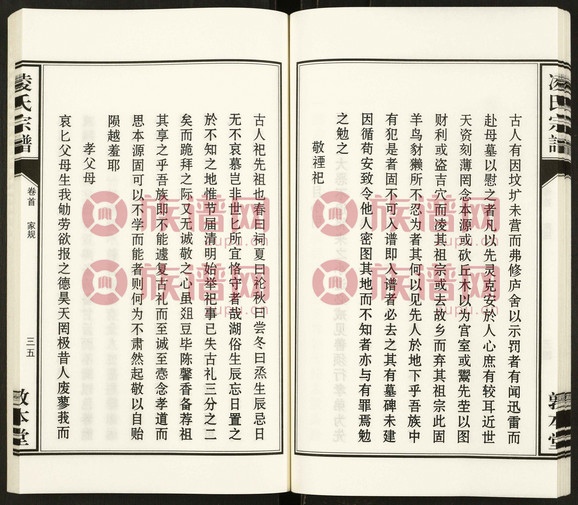 凌氏宗譜
古人有因坟圹未营而弗修庐舍以示罚者有闻迅雷而
赴母墓以慰之者凡以先灵克安于人心庶有较耳近世
天资刻薄罔念本源或砍丘木以为宫室或鬻先茔以图
财利或盗吉穴而凌其祖宗或去故乡而弃其祖宗此固
羊鸟豺獭所不忍为者其何以见先人於地下乎吾族中
有犯是者固不可入谱即入谱者必去之其有墓碑未建
因循苟安致令他人密图其地而不知者亦与有罪焉勉
之勉之
敬禋祀
敦本堂
古人祀先祖也春曰祠夏曰礿秋曰尝冬曰烝生辰忌日
无不哀慕岂非世匕所宜恪守者哉湖俗生辰忘日置之
於不知之地惟节届清明始举祀事已失古礼三分之二
矣而跪拜之际又无诚敬之心虽爼豆毕陈馨香备荐祖
其享之乎吾族即不能遽复古礼而至诚至悫念孝道而
思本源固可以不学而能者则何为不肃然起敬以自贻
陨越羞耶
孝父母
哀匕父母生我劬劳欲报之德昊天罔极昔人废蓼莪而
凌氏宗譜
卷首
家规
三五
敦本堂
族谱网
族谱网
族谱网
族谱网